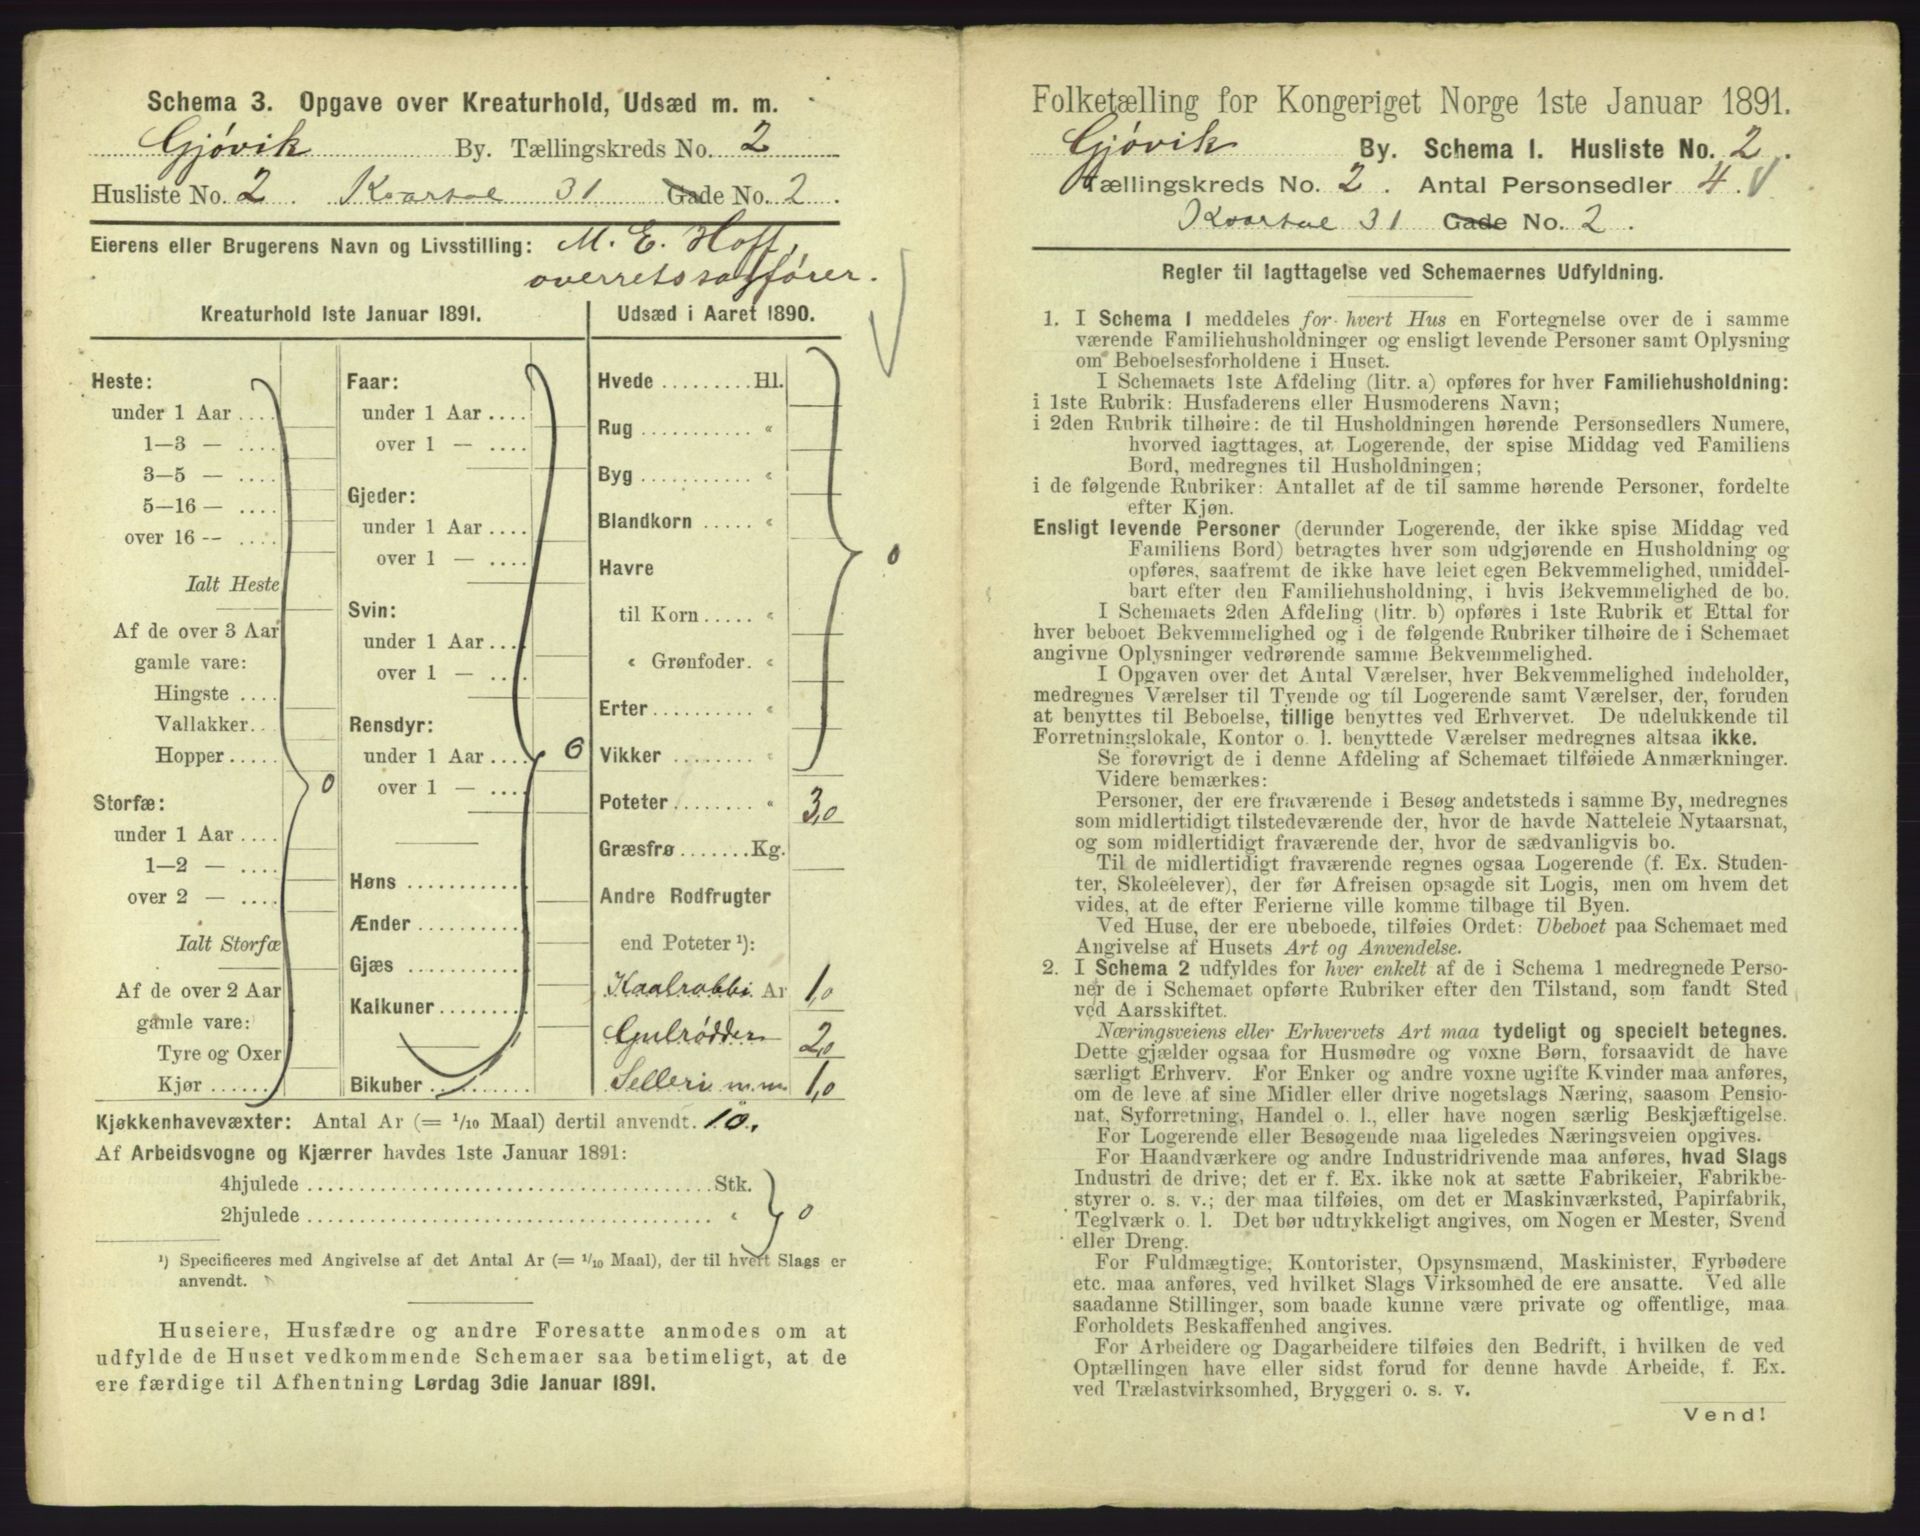 Schema 3. Opgave over Kreaturhold, Udsæd m. m.
Gjøvik By. Tællingskreds No. 2
Husliste No. 2. Kvartal 31 Gade No. 2.
Eierens eller Brugerens Navn og Livsstilling: M. E. Hoff,
overretssagfører.
Kreaturhold 1ste Januar 1891.
Heste:
under 1 Aar ....
1—3 — ....
3—5 — ....
5—16 — ....
over 16 -- ....
Ialt Heste
Af de over 3 Aar
gamle vare:
Hingste ....
Vallakker....
Hopper.....
0
Storfæ:
under 1 Aar ....
1—2 — ....
over 2 — ....
Ialt Storfæ
Af de over 2 Aar
gamle vare:
Tyre og Oxer
Kjør ......
Faar:
under 1 Aar ....
over 1 — ....
Gjeder:
under 1 Aar ....
over 1 — ....
Svin:
under 1 Aar ....
over 1 — ....
Rensdyr:
under 1 Aar ....
0
over 1 — ....
Høns ..........
Ænder ..........
Gjæs ..........
Kalkuner.......
Bikuber .......
Udsæd i Aaret 1890.
Hvede .........Hl.
Rug .......... «
Byg .......... «
Blandkorn ..... «
0
Havre
til Korn..... «
« Grønfoder. «
Erter......... «
Vikker ....... «
Poteter....... « 3,0
Græsfrø.......Kg.
Andre Rodfrugter
end Poteter ¹):
Kaalrabbi Ar 1,0
Gulrødder 2,0
Selleri m.m. 1,0
Kjøkkenhavevæxter: Antal Ar (= 1/10 Maal) dertil anvendt. 10.
Af Arbeidsvogne og Kjærrer havdes 1ste Januar 1891:
4hjulede ....................................Stk.
2hjulede .................................... « 0
¹) Specificeres med Angivelse af det Antal Ar (= 1/10 Maal), der til hvert Slags er
anvendt.
Huseiere, Husfædre og andre Foresatte anmodes om at
udfylde de Huset vedkommende Schemaer saa betimeligt, at de
ere færdige til Afhentning Lørdag 3die Januar 1891.
Folketælling for Kongeriget Norge 1ste Januar 1891.
Gjøvik By. Schema I. Husliste No. 2.
Tællingskreds No. 2. Antal Personsedler 4.
Kvartal 31 Gade No. 2.
Regler til Iagttagelse ved Schemaernes Udfyldning.
1. I Schema 1 meddeles for hvert Hus en Fortegnelse over de i samme
værende Familiehusholdninger og ensligt levende Personer samt Oplysning
om Beboelsesforholdene i Huset.
I Schemaets 1ste Afdeling (litr. a) opføres for hver Familiehusholdning:
i 1ste Rubrik: Husfaderens eller Husmoderens Navn;
i 2den Rubrik tilhøire: de til Husholdningen hørende Personsedlers Numere,
hvorved iagttages, at Logerende, der spise Middag ved Familiens
Bord, medregnes til Husholdningen;
i de følgende Rubriker: Antallet af de til samme hørende Personer, fordelte
efter Kjøn.
Ensligt levende Personer (derunder Logerende, der ikke spise Middag ved
Familiens Bord) betragtes hver som udgjørende en Husholdning og
opføres, saafremt de ikke have leiet egen Bekvemmelighed, umiddel-
bart efter den Familiehusholdning, i hvis Bekvemmelighed de bo.
I Schemaets 2den Afdeling (litr. b) opføres i 1ste Rubrik et Ettal for
hver beboet Bekvemmelighed og i de følgende Rubriker tilhøire de i Schemaet
angivne Oplysninger vedrørende samme Bekvemmelighed.
I Opgaven over det Antal Værelser, hver Bekvemmelighed indeholder,
medregnes Værelser til Tyende og til Logerende samt Værelser, der, foruden
at benyttes til Beboelse, tillige benyttes ved Erhvervet. De udelukkende til
Forretningslokale, Kontor o. l. benyttede Værelser medregnes altsaa ikke.
Se forøvrigt de i denne Afdeling af Schemaet tilføiede Anmærkninger.
Videre bemærkes:
Personer, der ere fraværende i Besøg andetsteds i samme By, medregnes
som midlertidigt tilstedeværende der, hvor de havde Natteleie Nytaarsnat,
og som midlertidigt fraværende der, hvor de sædvanligvis bo.
Til de midlertidigt fraværende regnes ogsaa Logerende (f. Ex. Studen-
ter, Skoleelever), der før Afreisen opsagde sit Logis, men om hvem det
vides, at de efter Ferierne ville komme tilbage til Byen.
Ved Huse, der ere ubeboede, tilføies Ordet: Ubeboet paa Schemaet med
Angivelse af Husets Art og Anvendelse.
2. I Schema 2 udfyldes for hver enkelt af de i Schema 1 medregnede Perso-
ner de i Schemaet opførte Rubriker efter den Tilstand, som fandt Sted
ved Aarsskiftet.
Næringsveiens eller Erhvervets Art maa tydeligt og specielt betegnes.
Dette gjælder ogsaa for Husmødre og voxne Børn, forsaavidt de have
særligt Erhverv. For Enker og andre voxne ugifte Kvinder maa anføres,
om de leve af sine Midler eller drive nogetslags Næring, saasom Pensio-
nat, Syforretning, Handel o. l., eller have nogen særlig Beskjæftigelse.
For Logerende eller Besøgende maa ligeledes Næringsveien opgives.
For Haandværkere og andre Industridrivende maa anføres, hvad Slags
Industri de drive; det er f. Ex. ikke nok at sætte Fabrikeier, Fabrikbe-
styrer o. s. v.; der maa tilføies, om det er Maskinværksted, Papirfabrik,
Teglværk o. l. Det bør udtrykkeligt angives, om Nogen er Mester, Svend
eller Dreng.
For Fuldmægtige, Kontorister, Opsynsmænd, Maskinister, Fyrbødere
etc. maa anføres, ved hvilket Slags Virksomhed de ere ansatte. Ved alle
saadanne Stillinger, som baade kunne være private og offentlige, maa
Forholdets Beskaffenhed angives.
For Arbeidere og Dagarbeidere tilføies den Bedrift, i hvilken de ved
Optællingen have eller sidst forud for denne havde Arbeide, f. Ex.
ved Trælastvirksomhed, Bryggeri o. s. v.
Vend!